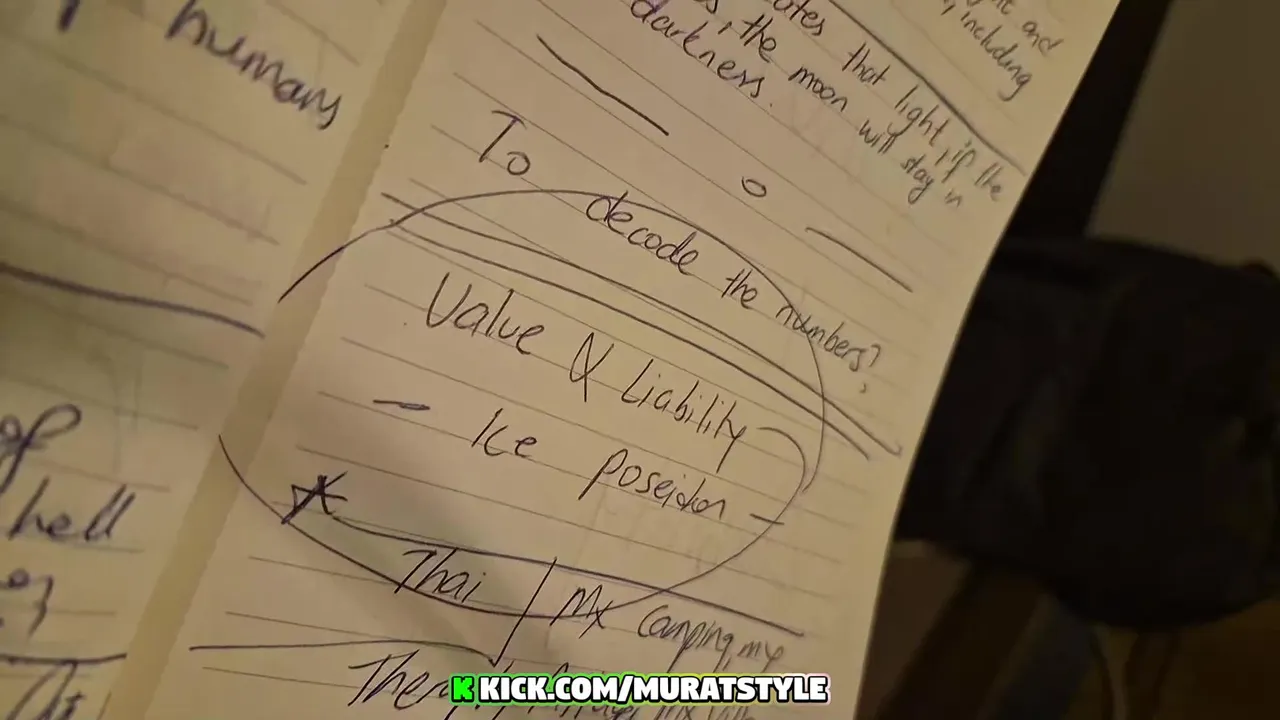 humans
of
hell
light and
including
that light, if the
, the moon will stay in
darkness.
To decode the numbers?
Value & Liability
- Ice poseidon -
Thai | Mx Camping, my
KICK.COM/MURATSTYLE